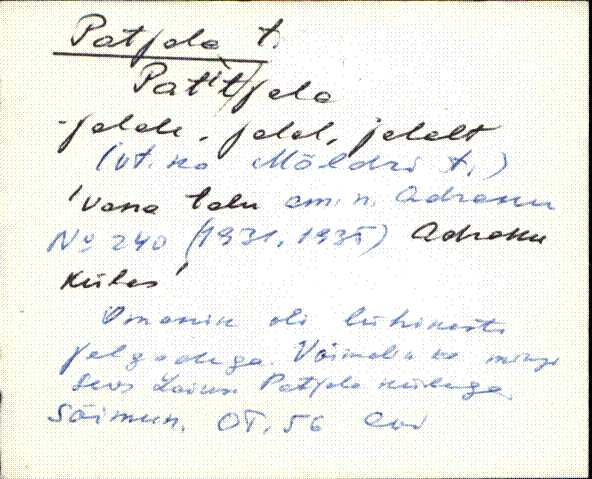 Patjala t.
Pat't'jala
-jalale, jalal, jalalt
(vt. ka Möldri t.)
'vana talu am. n. Adraku
No 240 (1931, 1935) Adraku
külas'
Omanik oli lühikeste
jalgadega. Võimalik ka mingi
seos Laiuse Patjala külaga.
Sõimun. OT. 56